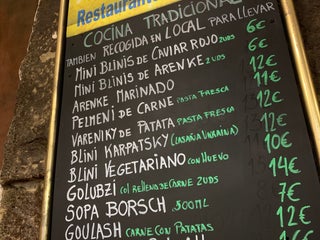 Restaurant
COCINA TRADICIONAL
TAMBIEN RECOGIDA EN LOCAL PARA LLEVAR
MINI BLINIS DE CAVIAR ROJO 2UDS 6€
MINI BLINIS DE ARENKE 2UDS 6€
ARENKE MARINADO 12€
PELMENI DE CARNE PASTA FRESCA 11€
VARENIKY DE PATATA PASTA FRESCA 12€
BLINI KARPATSKY (LASAÑA UKRAINA) 12€
BLINI VEGETARIANO CON HUEVO 10€
GOLUBZI COL RELLENO DE CARNE 2UDS 14€
SOPA BORSCH 500ML 7€
GOULASH CARNE CON PATATAS 12€
12€